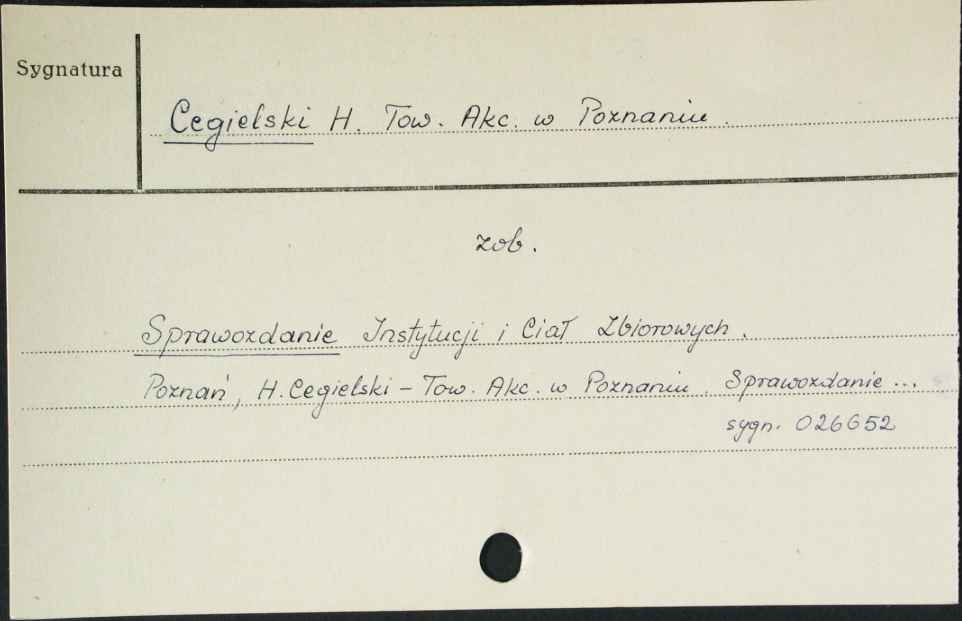 Sygnatura
Cegielski H. Tow. Akc. w Poznaniu.
zob.
Sprawozdanie Instytucji i Ciał Zbiorowych.
Poznań, H. Cegielski - Tow. Akc. w Poznaniu. Sprawozdanie ...
sygn. 026652